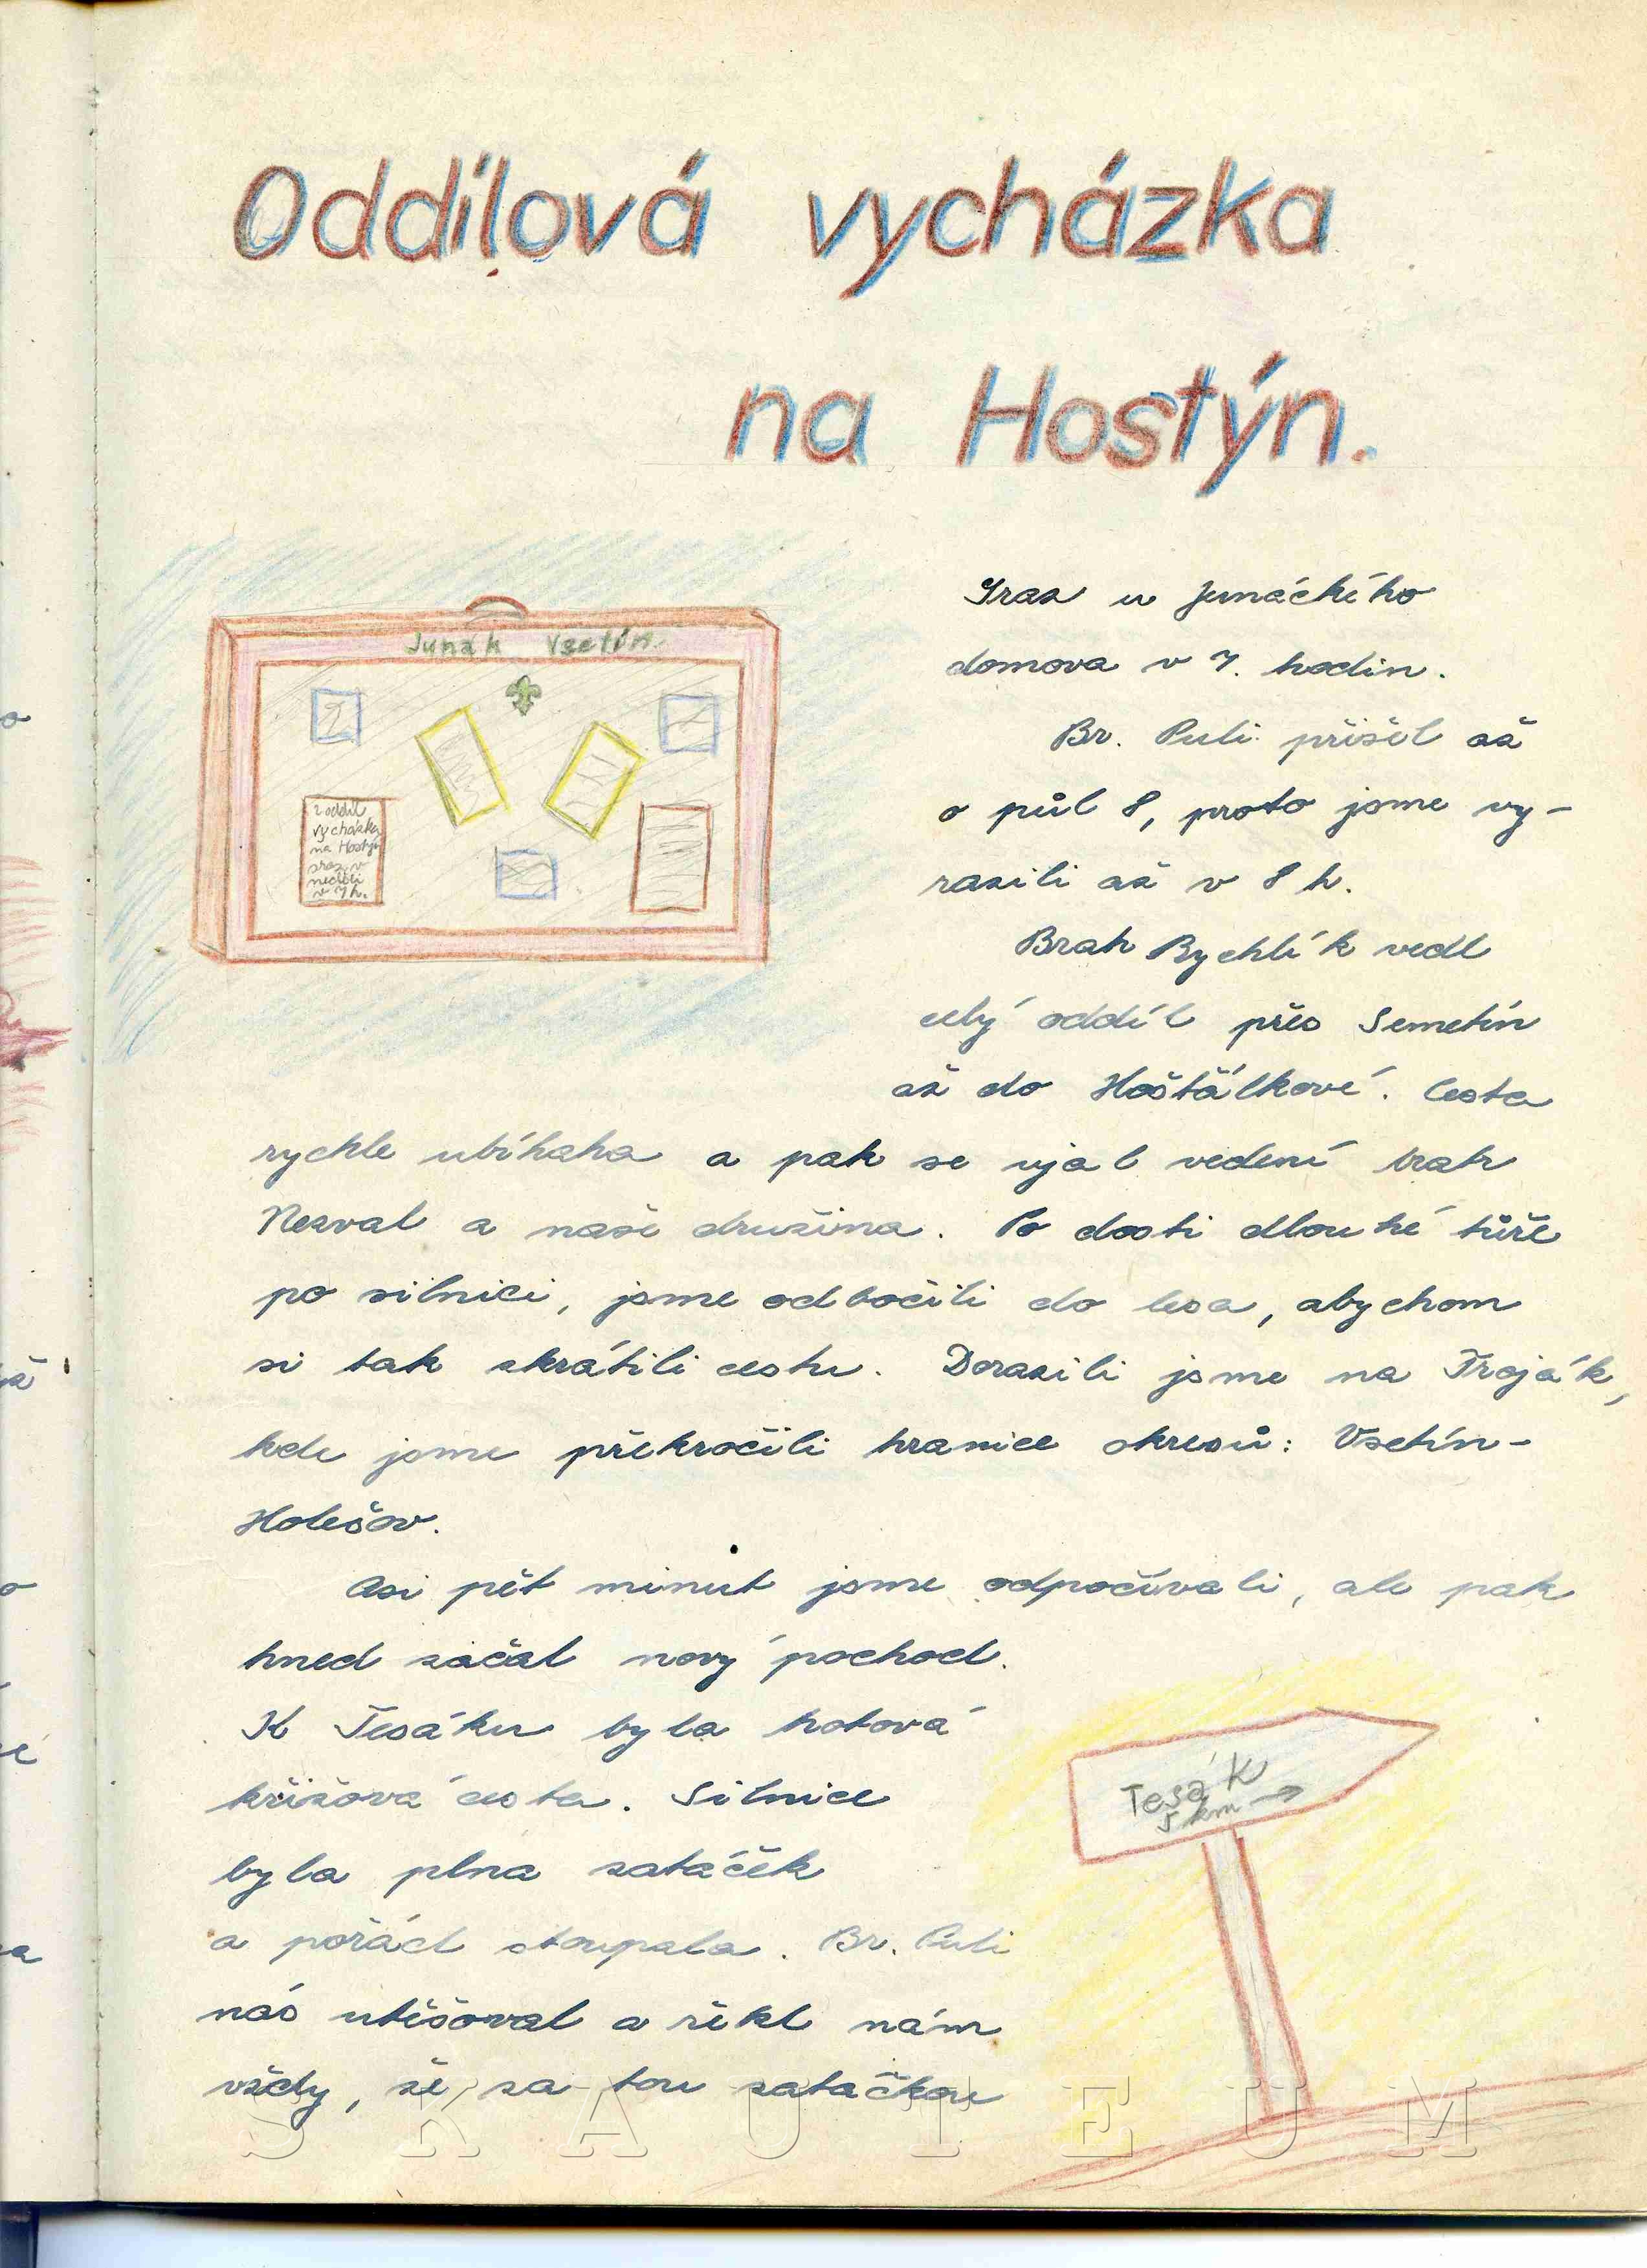 Oddílová vycházka
na Hostýn.
Junák Vsetín.
2 oddíl
vycházka
na Hostýn
sraz v
neděli
v 7 h.
Sraz u Junáckého
domova v 7. hodin.
Br. Puli přišel až
o půl 8, proto jsme vy-
razili až v 8 h.
Bratr Rychlík vedl
celý oddíl přes Semetín
až do Hošťálkové. Cesta
rychle ubíhaha a pak se ujal vedení bratr
Nezval a naše družina. Po dosti dlouhé túře
po silnici, jsme odbočili do lesa, abychom
si tak zkrátili cestu. Dorazili jsme na Troják,
kde jsme překročili hranice okresů: Vsetín-
Holešov.
Asi pět minut jsme odpočívali, ale pak
hned začal nový pochod.
K Tesáku byla hotová
křížová cesta. Silnice
byla plna zatáček
a pořád stoupala. Br. Puli
nás utěšoval a řekl nám
vždy, že za tou zatáčkou
Tesák
5 km →
SKAUTEUM